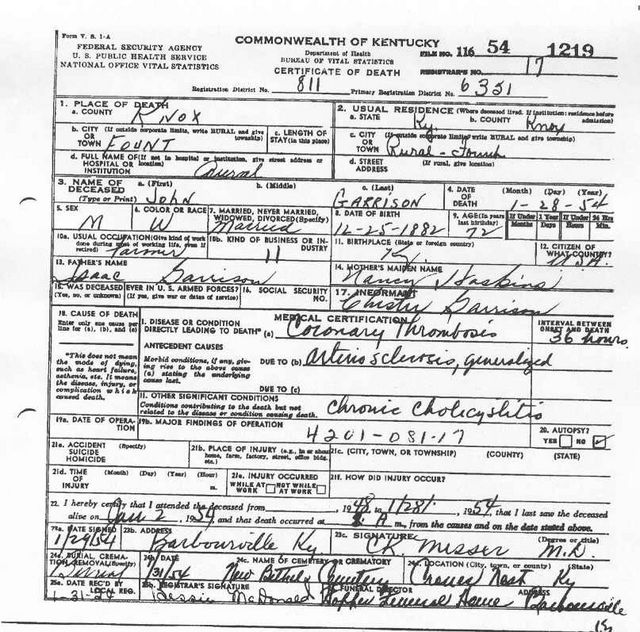 Form V. S. 1-A
FEDERAL SECURITY AGENCY
U. S. PUBLIC HEALTH SERVICE
NATIONAL OFFICE VITAL STATISTICS
COMMONWEALTH OF KENTUCKY
Department of Health
BUREAU OF VITAL STATISTICS
CERTIFICATE OF DEATH
FILE NO. 116 54 1219
REGISTRAR'S NO. 17
Registration District No. 811 Primary Registration District No. 6351
1. PLACE OF DEATH
a. COUNTY Knox
2. USUAL RESIDENCE (Where deceased lived. If institution: residence before admission)
a. STATE Ky b. COUNTY Knox
b. CITY (If outside corporate limits, write RURAL and give township) OR TOWN FOUNT
c. LENGTH OF STAY (in this place)
c. CITY (If outside corporate limits, write RURAL and give township) OR TOWN Rural - Fount
d. FULL NAME OF (If not in hospital or institution, give street address or location) HOSPITAL OR INSTITUTION Rural
d. STREET ADDRESS (If rural, give location)
3. NAME OF DECEASED (Type or Print) a. (First) JOHN b. (Middle) c. (Last) GARRISON
4. DATE OF DEATH (Month) (Day) (Year) 1-28-54
5. SEX M
6. COLOR OR RACE W
7. MARRIED, NEVER MARRIED, WIDOWED, DIVORCED (Specify) Married
8. DATE OF BIRTH 12-25-1882
9. AGE (In years last birthday) 72
If Under 1 Year Months Days
If Under 24 Hrs Hours Min.
10a. USUAL OCCUPATION (Give kind of work done during most of working life, even if retired) Farmer
10b. KIND OF BUSINESS OR INDUSTRY 11
11. BIRTHPLACE (State or foreign country) Ky.
12. CITIZEN OF WHAT COUNTRY? USA
13. FATHER'S NAME Isaac Garrison
14. MOTHER'S MAIDEN NAME Nancy Haskins
15. WAS DECEASED EVER IN U. S. ARMED FORCES? (Yes, no, or unknown) (If yes, give war or dates of service)
16. SOCIAL SECURITY NO.
17. INFORMANT Garrison
18. CAUSE OF DEATH
Enter only one cause per line for (a), (b), and (c)
MEDICAL CERTIFICATION
INTERVAL BETWEEN ONSET AND DEATH
I. DISEASE OR CONDITION DIRECTLY LEADING TO DEATH* (a) Coronary Thrombosis 36 hours
*This does not mean the mode of dying, such as heart failure, asthenia, etc. It means the disease, injury, or complication which caused death.
ANTECEDENT CAUSES
Morbid conditions, if any, giving rise to the above cause (a) stating the underlying cause last.
DUE TO (b) arterio sclerosis, generalized
DUE TO (c)
II. OTHER SIGNIFICANT CONDITIONS
Conditions contributing to the death but not related to the disease or condition causing death. Chronic Cholicystitis
19a. DATE OF OPERATION
19b. MAJOR FINDINGS OF OPERATION
4201-081-17
20. AUTOPSY? YES NO
21a. ACCIDENT SUICIDE HOMICIDE (Specify)
21b. PLACE OF INJURY (e.g., in or about home, farm, factory, street, office bldg. etc.)
21c. (CITY, TOWN, OR TOWNSHIP) (COUNTY) (STATE)
21d. TIME OF INJURY (Month) (Day) (Year) (Hour) m.
21e. INJURY OCCURRED WHILE AT WORK NOT WHILE AT WORK
21f. HOW DID INJURY OCCUR?
22. I hereby certify that I attended the deceased from 1948 to 1/28/, 1954, that I last saw the deceased
alive on Jan 2 1954, and that death occurred at A m., from the causes and on the date stated above.
23a. DATE SIGNED 1/29/54
23b. ADDRESS Barbourville Ky.
23c. SIGNATURE (Degree or title) CK Messer M.D.
24a. BURIAL, CREMATION, REMOVAL (Specify) Burial
24b. DATE 1/31/54
24c. NAME OF CEMETERY OR CREMATORY New Bethel Cemetery
24d. LOCATION (City, town, or county) (State) Cranes Nest Ky
25a. DATE REC'D BY LOCAL REG. 1-31-54
25b. REGISTRAR'S SIGNATURE Bessie McDonald
FUNERAL DIRECTOR Hopper Funeral Home
ADDRESS Barbourville
Ky